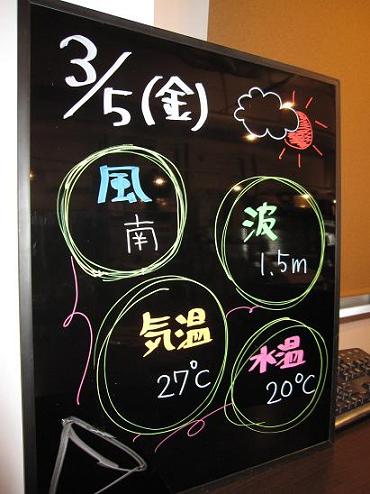 3/5(金)
風
南
波
1.5m
気温
27℃
水温
20℃